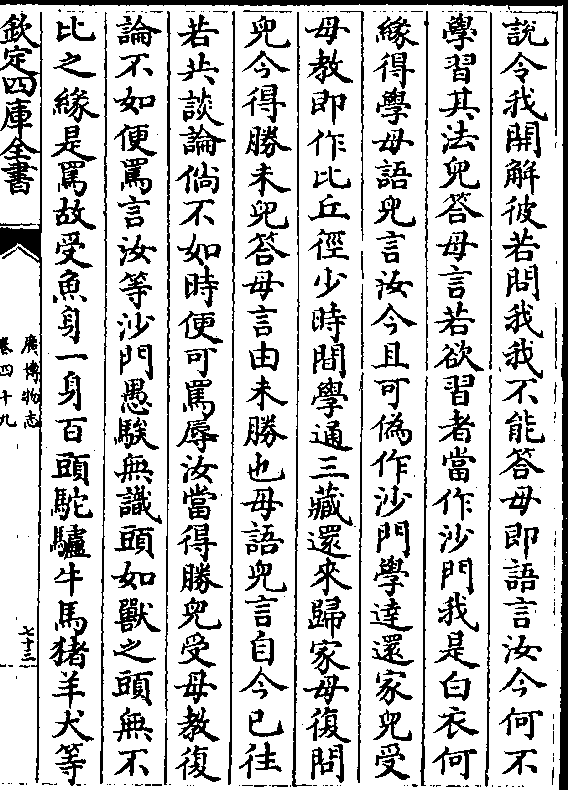 說令我開解彼若問我我不能答母即語言汝今何不
學習其法兒答母言若欲習者當作沙門我是白衣何
緣得學母語兒言汝今且可偽作沙門學達還家兒受
母教即作比丘徑少時間學通三藏還來歸家母復問
兒今得勝未兒答母言由未勝也母語兒言自今已往
若共談論倘不如時便可罵辱汝當得勝兒受母教復
論不如便罵言汝等沙門愚騃無識頭如獸之頭無不
比之緣是罵故受魚身一身百頭駝驢牛馬猪羊犬等
欽定四庫全書
廣博物志
卷四十九
七十三